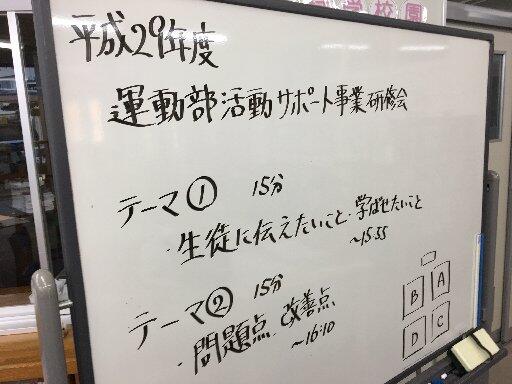 平成29年度
運動部活動サポート事業研修会
テーマ① 15分
・生徒に伝えたいこと・学ばせたいこと
~15:55
テーマ② 15分
・問題点・改善点
~16:10
B A
D C